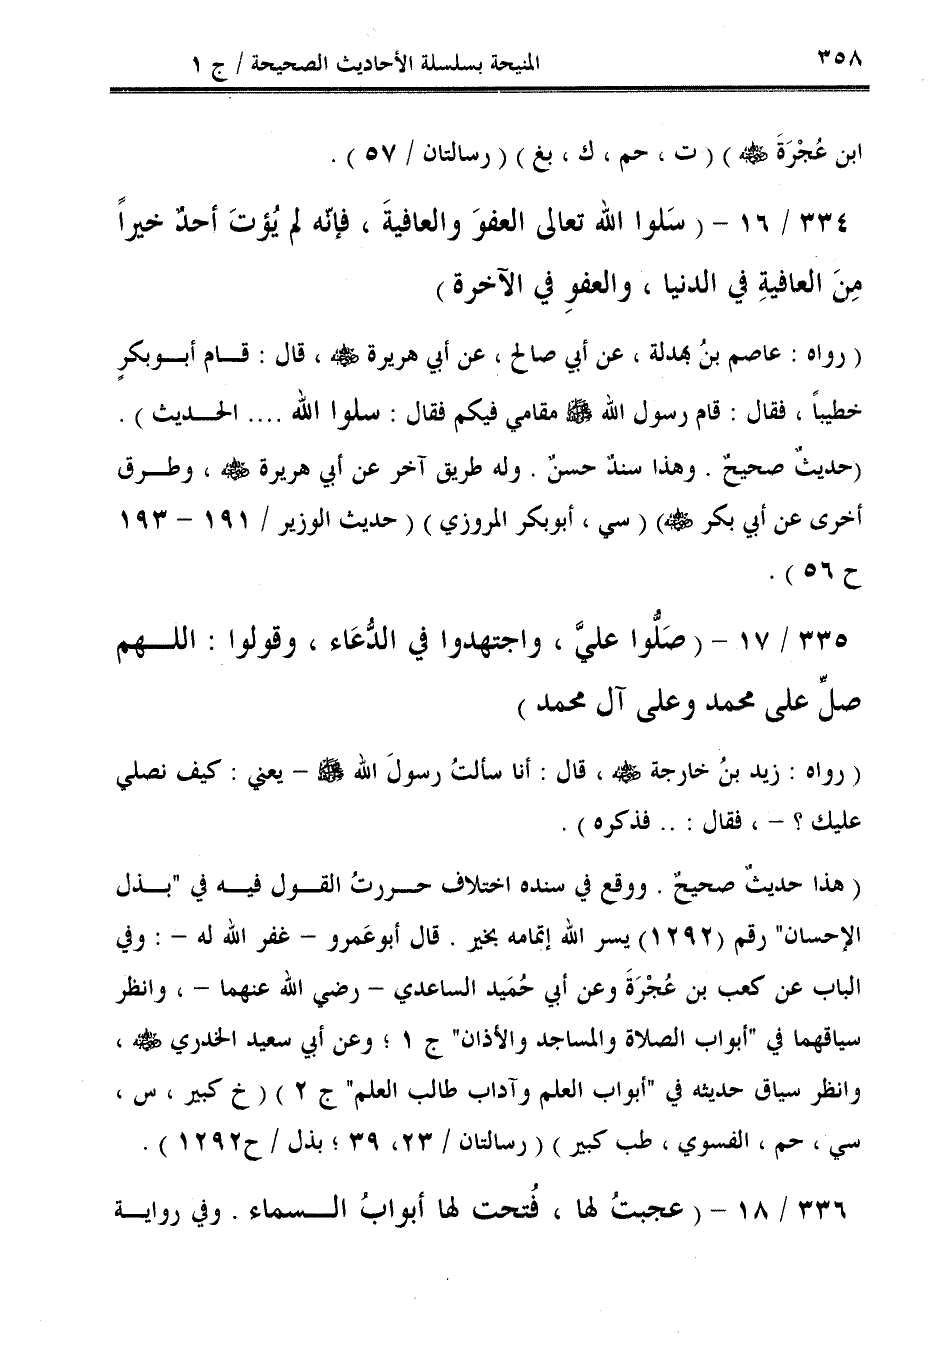 ٣٥٨ المنيحة بسلسلة الأحاديث الصحيحة / ج ١
ابن عُجْرَةَ ﷺ ) ( ت ، حم ، ك ، بغ ) ( رسالتان / ٥٧ ) .
٣٣٤ / ١٦ – ( سَلوا الله تعالى العفوَ والعافيةَ ، فإنّه لم يُؤتَ أحدٌ خيراً
مِنَ العافيةِ في الدنيا ، والعفوِ في الآخرة )
( رواه : عاصم بنُ بهدلة ، عن أبي صالح ، عن أبي هريرة رضي الله عنه ، قال : قــام أبــوبكرٍ
خطيباً ، فقال : قام رسول الله ﷺ مقامي فيكم فقال : سلوا الله .... الحــديث ) .
(حديثٌ صحيحٌ . وهذا سندٌ حسنٌ . وله طريق آخر عن أبي هريرة رضي الله عنه ، وطــرق
أخرى عن أبي بكر رضي الله عنه) ( سي ، أبوبكر المروزي ) ( حديث الوزير / ١٩١ – ١٩٣
ح ٥٦ ) .
٣٣٥ / ١٧ – ( صَلُّوا عليَّ ، واجتهدوا في الدُّعَاء ، وقولوا : اللــهم
صلِّ على محمد وعلى آل محمد )
( رواه : زيد بنُ خارجة رضي الله عنه ، قال : أنا سألتُ رسولَ الله ﷺ – يعني : كيف نصلي
عليك ؟ – ، فقال : .. فذكره ) .
( هذا حديثٌ صحيحٌ . ووقع في سنده اختلاف حــررتُ القــول فيــه في "بــذل
الإحسان" رقم (١٢٩٢) يسر الله إتمامه بخير . قال أبوعَمرو – غفر الله له – : وفي
الباب عن كعب بن عُجْرَةَ وعن أبي حُمَيد الساعدي – رضي الله عنهما – ، وانظر
سياقهما في "أبواب الصلاة والمساجد والأذان" ج ١ ؛ وعن أبي سعيد الخدري رضي الله عنه ،
وانظر سياق حديثه في "أبواب العلم وآداب طالب العلم" ج ٢ ) ( خ كبير ، س ،
سي ، حم ، الفسوي ، طب كبير ) ( رسالتان / ٢٣، ٣٩ ؛ بذل / ح١٢٩٢ ) .
٣٣٦ / ١٨ – ( عجبتُ لها ، فُتحت لها أبوابُ الــسماء . وفي روايــة